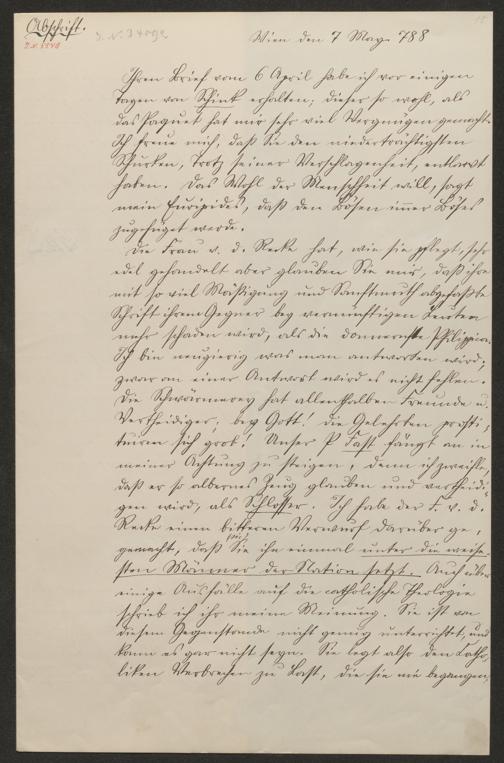 Abschrift.
Wien den 7 May 788
Ihren Brief vom 6 April habe ich vor einigen
Tagen von Schink erhalten; dieser so wohl, als
das Paquet hat mir sehr viel Vergnügen gemacht.
Ich freue mich, daß Sie den niederträchtigsten
Schurken, trotz seiner Verschlagenheit, entlarvt
haben. Das Wohl der Menschheit will, sagt
mein Euripides, daß den Bösen immer Böses
zugefüget werde.
Die Frau v. d. Recke hat, wie sie pflegt, sehr
edel gehandelt aber glauben Sie mir, daß ihre
mit so viel Mäßigung und Sanftmuth abgefaßte
Schrift ihrem Gegner bey vernünftigen Leuten
mehr schaden wird, als die donnernste Philippica.
Ich bin neugierig was man antworten wird;
zwar an einer Antwort wird es nicht fehlen.
Die Schwärmerey hat allenthalben Freunde u.
Vertheidiger; bey Gott! die Gelehrten prosti-
tuiren sich grob! Unser P Fast fängt an in
meiner Achtung zu steigen, denn ich zweifle,
daß er so albernes Zeug glauben und vertheidi-
gen wird, als Schlosser. Ich habe der F. v. d.
Recke einen bitteren Verwurf darüber ge-
gemacht, daß Sie ihn einmal unter die weise-
sten Männer der Nation setzt. Auch über
einige Ausfälle auf die catholische Theologie
schrieb ich ihr meine Meinung. Sie ist von
diesem Gegenstande nicht genug unterrichtet, und
kann es gar nicht seyn. Sie legt also den Catho-
liken Verbrechen zu Last, die sie nie begangen,